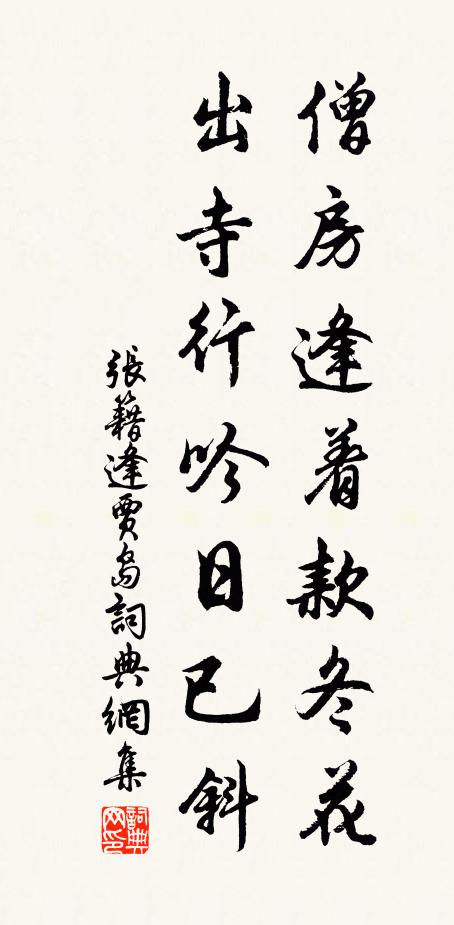 僧房逢着款冬花
出寺行吟日已斜
張籍逢賈島詞典網集
詞典網印